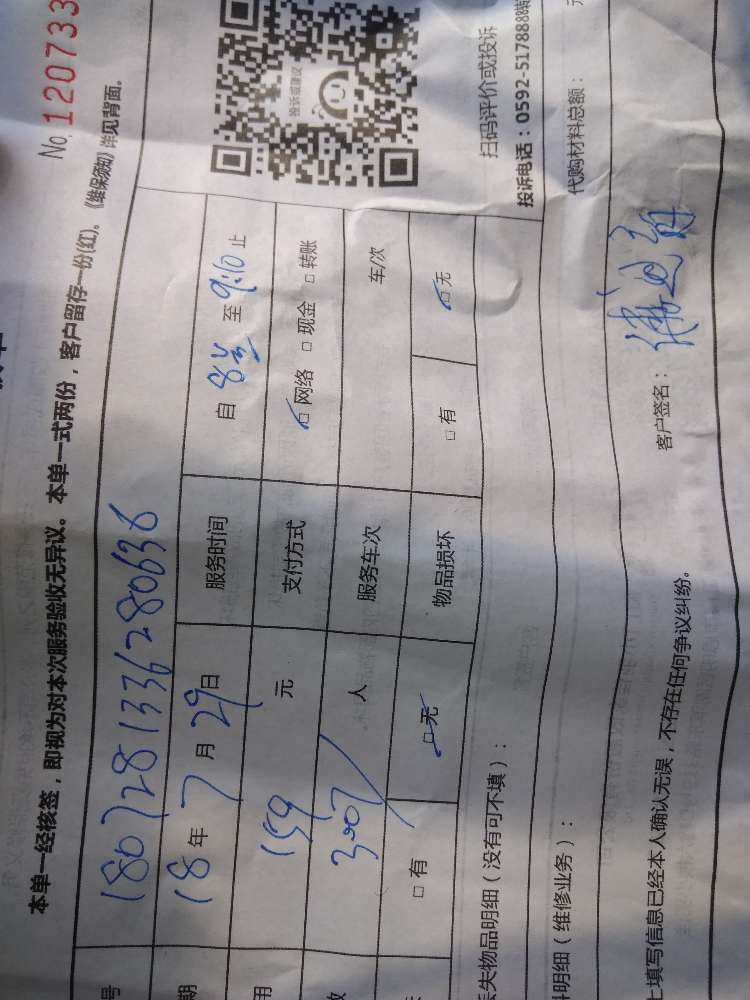 No.120733
本单一经核签，即视为对本次服务验收无异议。本单一式两份，客户留存一份(红)。《维保须知》详见背面。
号 1807281336280636
期 18年 7月 29日 服务时间 自 至 9:10 止
用 159 元 支付方式 ☑网络 □现金 □转账
人 服务车次 车/次
□有 ☑无 物品损坏 □有 ☑无
投诉或建议
扫码评价或投诉
投诉电话：0592-5178888转
丢失物品明细（没有可不填）：
明细（维修业务）：
代购材料总额：
上填写信息已经本人确认无误，不存在任何争议纠纷。
客户签名：